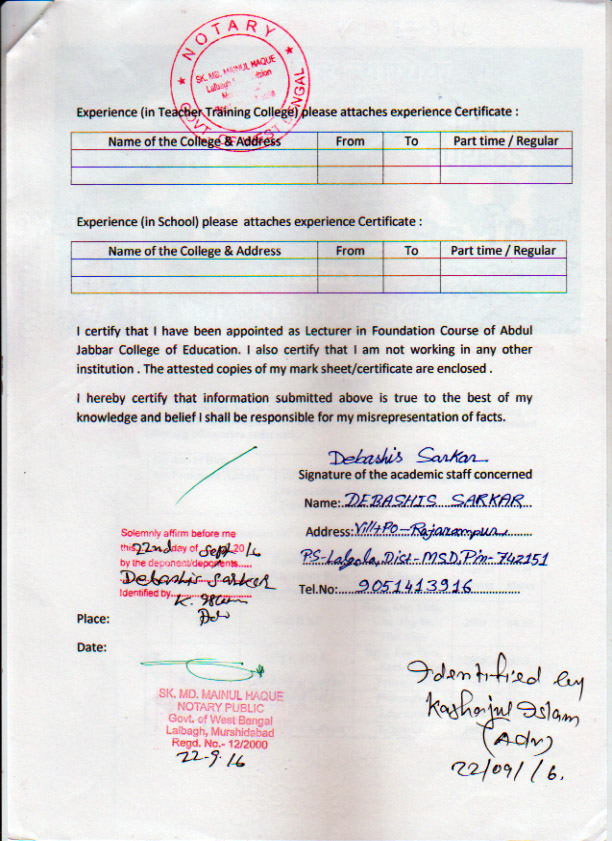 NOTARY
SK. MD. MAINUL HAQUE
Lalbagh
GOVT. OF WEST BENGAL
Experience (in Teacher Training College) please attaches experience Certificate :
Name of the College & Address From To Part time / Regular
Experience (in School) please attaches experience Certificate :
Name of the College & Address From To Part time / Regular
I certify that I have been appointed as Lecturer in Foundation Course of Abdul
Jabbar College of Education. I also certify that I am not working in any other
institution . The attested copies of my mark sheet/certificate are enclosed .
I hereby certify that information submitted above is true to the best of my
knowledge and belief I shall be responsible for my misrepresentation of facts.
Debashis Sarkar
Signature of the academic staff concerned
Name:.DEBASHIS SARKAR
Address:Vill+PO-Rajarampur
PS-Lalgola,Dist-MSD,Pin-742151
Tel.No:.9051413916
Solemnly affirm before me
this 22nd day of Sept 2016
by the deponent/deponents
Debashis Sarkar
Identified by K. Islam
Adv
Place:
Date:
SK. MD. MAINUL HAQUE
NOTARY PUBLIC
Govt. of West Bengal
Lalbagh, Murshidabad
Regd. No.- 12/2000
22-9-16
Identified by
Islam
(Adv)
22/09/16.